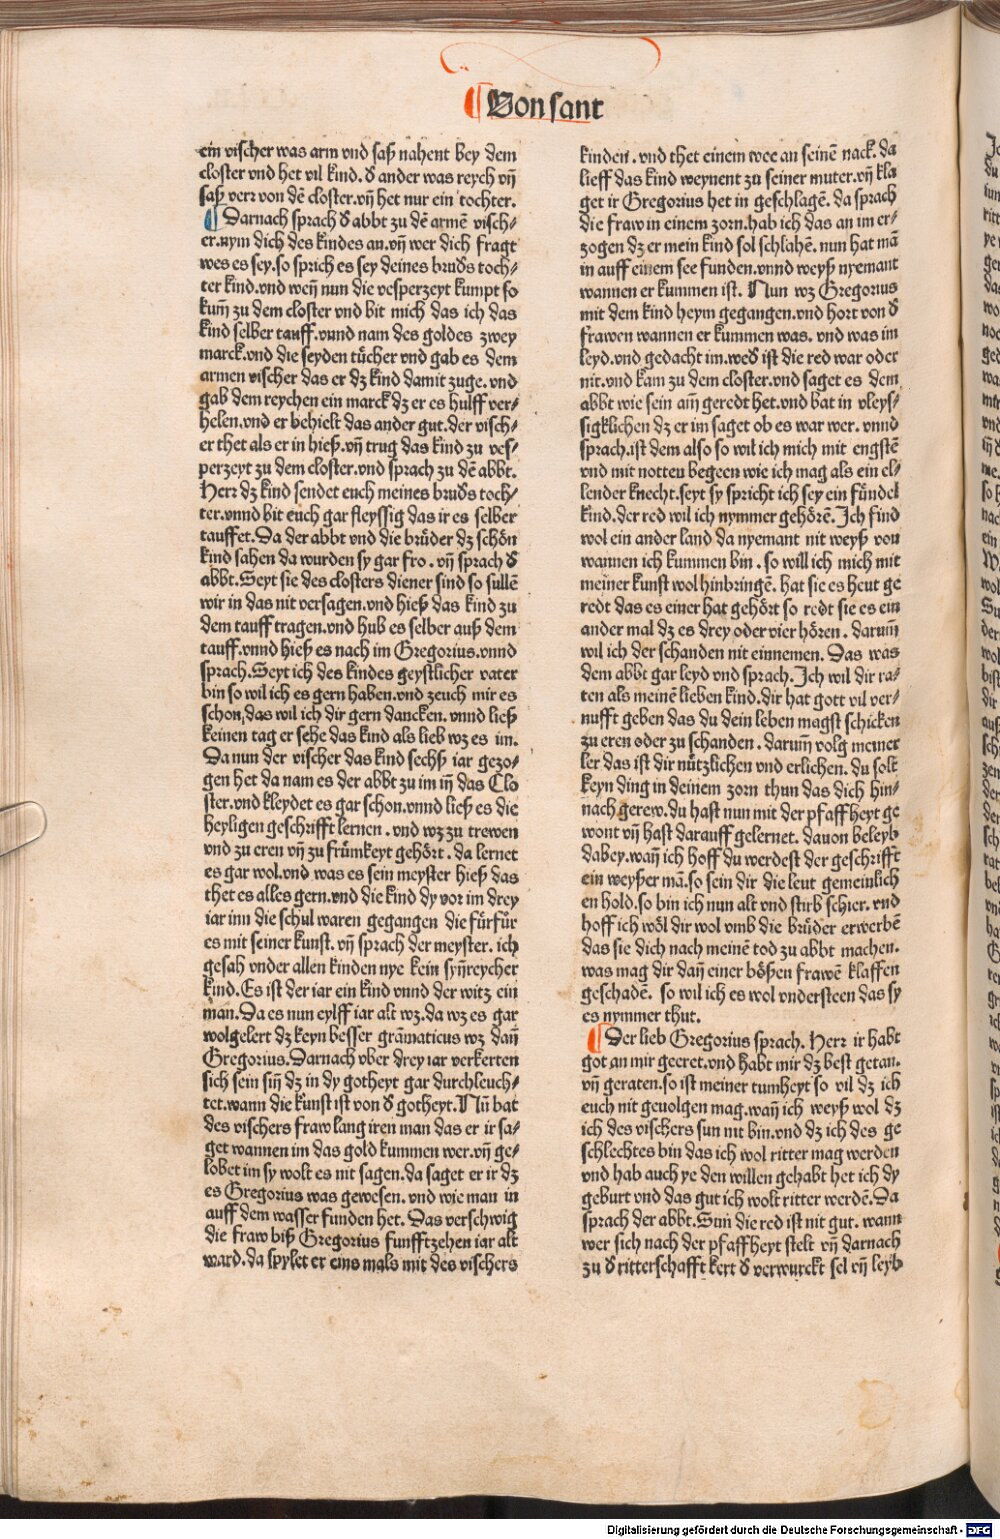 ¶ Von sant
ein vischer was arm vnd saß nahent bey dem
closter vnd het vil kind. đ ander was reych vn̄
saß verr von dē closter. vn̄ het nur ein tochter.
¶ Darnach sprach đ abbt zu dē armē visch⸗
er. nym dich des kindes an. vn̄ wer dich fragt
wes es sey. so sprich es sey deines bruđs toch⸗
ter kind. vnd wen̄ nun die vesperzeyt kumpt so
kum̄ zu dem closter vnd bit mich das ich das
kind selber tauff. vnnd nam des goldes zwey
marck. vnd die seyden tücher vnd gab es dem
armen vischer das er dz kind damit zuge. vnd
gab dem reychen ein marck dz er es hulff ver⸗
helen. vnd er behielt das ander gut. der visch⸗
er thet als er in hieß. vn̄ trug das kind zu ves⸗
perzeyt zu dem closter. vnd sprach zu dē abbt.
Herr dz kind sendet euch meines bruđs toch⸗
ter. vnnd bit euch gar fleyssig das ir es selber
tauffet. Da der abbt vnd die brüder dz schön
kind sahen da wurden sy gar fro. vn̄ sprach đ
abbt. Seyt sie des closters diener sind so sullē
wir in das nit versagen. vnd hieß das kind zu
dem tauff tragen. vnd hub es selber auß dem
tauff. vnnd hieß es nach im Gregorius. vnnd
sprach. Seyt ich des kindes geystlicher vater
bin so wil ich es gern haben. vnd zeuch mir es
schon, das wil ich dir gern dancken. vnnd ließ
keinen tag er sehe das kind als lieb wz es im.
Da nun der vischer das kind sechß iar gezo⸗
gen het da nam es der abbt zu im in̄ das Clo
ster. vnd kleydet es gar schon. vnnd ließ es die
heyligen geschrifft lernen. vnd wz zu trewen
vnd zu eren vn̄ zu frümkeyt gehört. da lernet
es gar wol. vnd was es sein meyster hieß das
thet es alles gern. vnd die kind dy vor im drey
iar inn die schul waren gegangen die fürfůr
es mit seiner kunst. vn̄ sprach der meyster. ich
gesah vnder allen kinden nye kein syn̄reycher
kind. Es ist der iar ein kind vnnd der witz ein
man. Da es nun eylff iar alt wz. da wz es gar
wolgelert dz keyn besser grāmaticus wz dan̄
Gregorius. Darnach vber drey iar verkerten
sich sein sin̄ dz in dy gotheyt gar durchleuch⸗
tet. wann die kunst ist von đ gotheyt. Nū bat
des vischers fraw lang iren man das er ir sa⸗
get wannen im das gold kummen wer. vn̄ ge⸗
lobet im sy wolt es nit sagen. da saget er ir dz
es Gregorius was gewesen. vnd wie man in
auff dem wasser funden het. Das verschwig
die fraw biß Gregorius funfftzehen iar alt
ward. da spylet er eins mals mit des vischers
kinden. vnd thet einem wee an seinē nack. da
lieff das kind weynent zu seiner muter. vn̄ kla
get ir Gregorius het in geschlagē. da sprach
die fraw in einem zorn. hab ich das an im er⸗
zogen dz er mein kind sol schlahē. nun hat mā
in auff einem see funden. vnnd weyß nyemant
wannen er kummen ist. Nun wz Gregorius
mit dem kind heym gegangen. vnd hort von đ
frawen wannen er kummen was. vnd was im
leyd. vnd gedacht im. weđ ist die red war oder
nit. vnd kam zu dem closter. vnd saget es dem
abbt wie sein am̄ geredt het. vnd bat in vleys⸗
sigklichen dz er im saget ob es war wer. vnnd
sprach. ist dem also so wil ich mich mit engstē
vnd mit notten begeen wie ich mag als ein el⸗
lender knecht. seyt sy spricht ich sey ein fündel
kind. der red wil ich nymmer gehörē. Ich find
wol ein ander land da nyemant nit weyß von
wannen ich kummen bin. so will ich mich mit
meiner kunst wol hinbringē. hat sie es heut ge
redt das es einer hat gehört so redt sie es ein
ander mal dz es drey oder vier hören. darum̄
wil ich der schanden nit einnemen. Das was
dem abbt gar leyd vnd sprach. Ich wil dir ra⸗
ten als meinē lieben kind. dir hat gott vil ver⸗
nufft geben das du dein leben magst schicken
zu eren oder zu schanden. darum̄ volg meiner
ler das ist dir nützlichen vnd erlichen. du solt
keyn ding in deinem zorn thun das dich hin⸗
nach gerew. du hast nun mit der pfaffheyt ge
wont vn̄ hast darauff gelernet. dauon beleyb
dabey. wan̄ ich hoff du werdest der geschrifft
ein weyßer mā. so sein dir die leut gemeinlich
en hold. so bin ich nun alt vnd stirb schier. vnd
hoff ich wöl dir wol vmb die brüder erwerbē
das sie dich nach meinē tod zu abbt machen.
was mag dir dan̄ einer bößen frawē klaffen
geschadē. so wil ich es wol vndersteen das sy
es nymmer thut.
¶ Der lieb Gregorius sprach. Herr ir habt
got an mir geeret. vnd habt mir dz best getan.
vn̄ geraten. so ist meiner tumheyt so vil dz ich
euch nit geuolgen mag. wan̄ ich weyß wol dz
ich des vischers sun nit bin. vnd dz ich des ge
schlechtes bin das ich wol ritter mag werden
vnd hab auch ye den willen gehabt het ich dy
geburt vnd das gut ich wolt ritter werdē. Da
sprach der abbt. Sun die red ist nit gut. wann
wer sich nach der pfaffheyt stelt vn̄ darnach
zu đ ritterschafft kert đ verwurckt sel vn̄ leyb
Digitalisierung gefördert durch die Deutsche Forschungsgemeinschaft - DFG